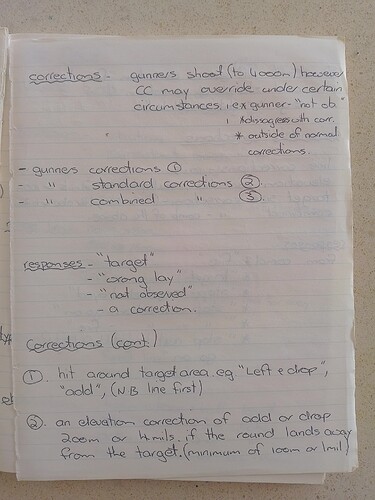 corrections - gunners shoot (to 4000m) however
CC may override under certain
circumstances, i.ex gunner - "not ob."
*dissagress with corr.
* outside of normal
corrections.
- gunners corrections ①
- " standard corrections ②.
- " combined " ③
responses - "target"
- "wrong lay"
- "not observed"
- a correction.
corrections (cont.)
①. hit around target area. eg. "Left & drop",
"add", (NB line first)
②. an elevation correction of add or drop
200m or 4mils. if the round lands away
from the target. (minimum of 100m or 1mil)